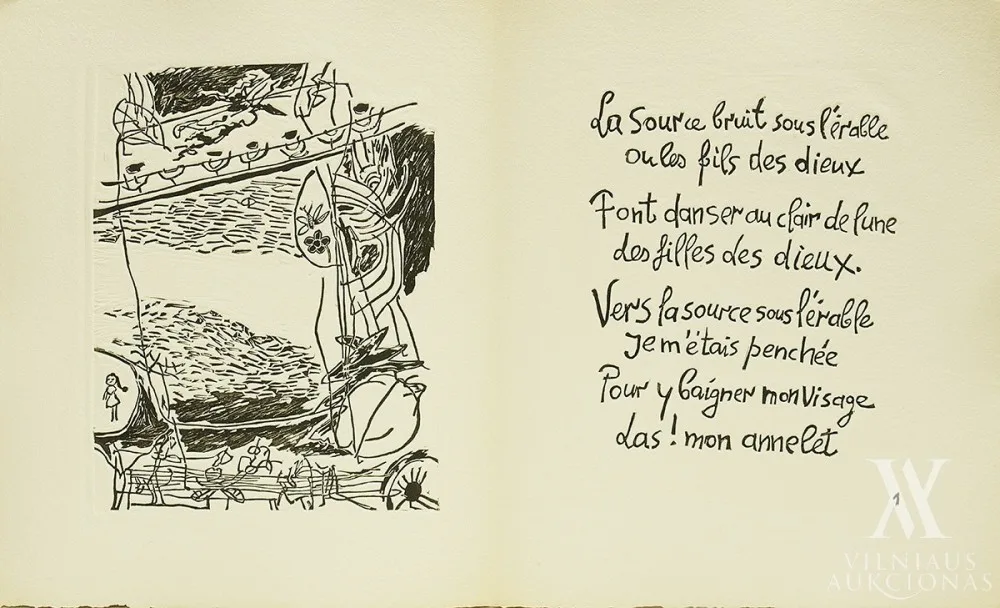 La source bruit sous l'érable
ou les fils des dieux
Font danser au clair de lune
des filles des dieux.
Vers la source sous l'érable
Je m'étais penchée
Pour y baigner mon visage
Las ! mon annelet
1
VILNIAUS
AUKCIONAS